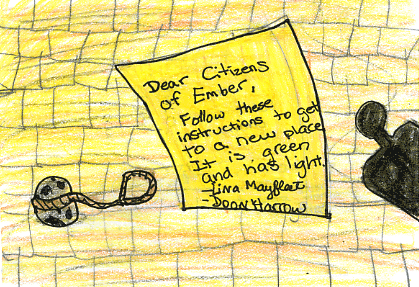 Dear Citizens
of Ember,
Follow these
instructions to get
to a new place
It is green
and has light.
-Lina Mayfleet
-Doon Harrow